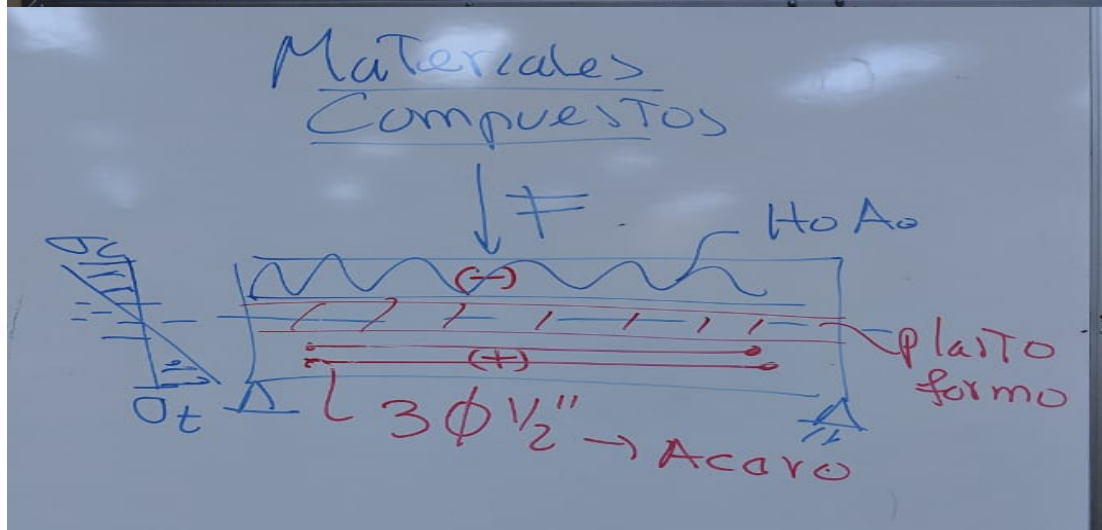 Materiales
Compuestos
F
HoAo
σc
(-)
plasto
formo
(+)
σt
3 φ 1/2" → Acero